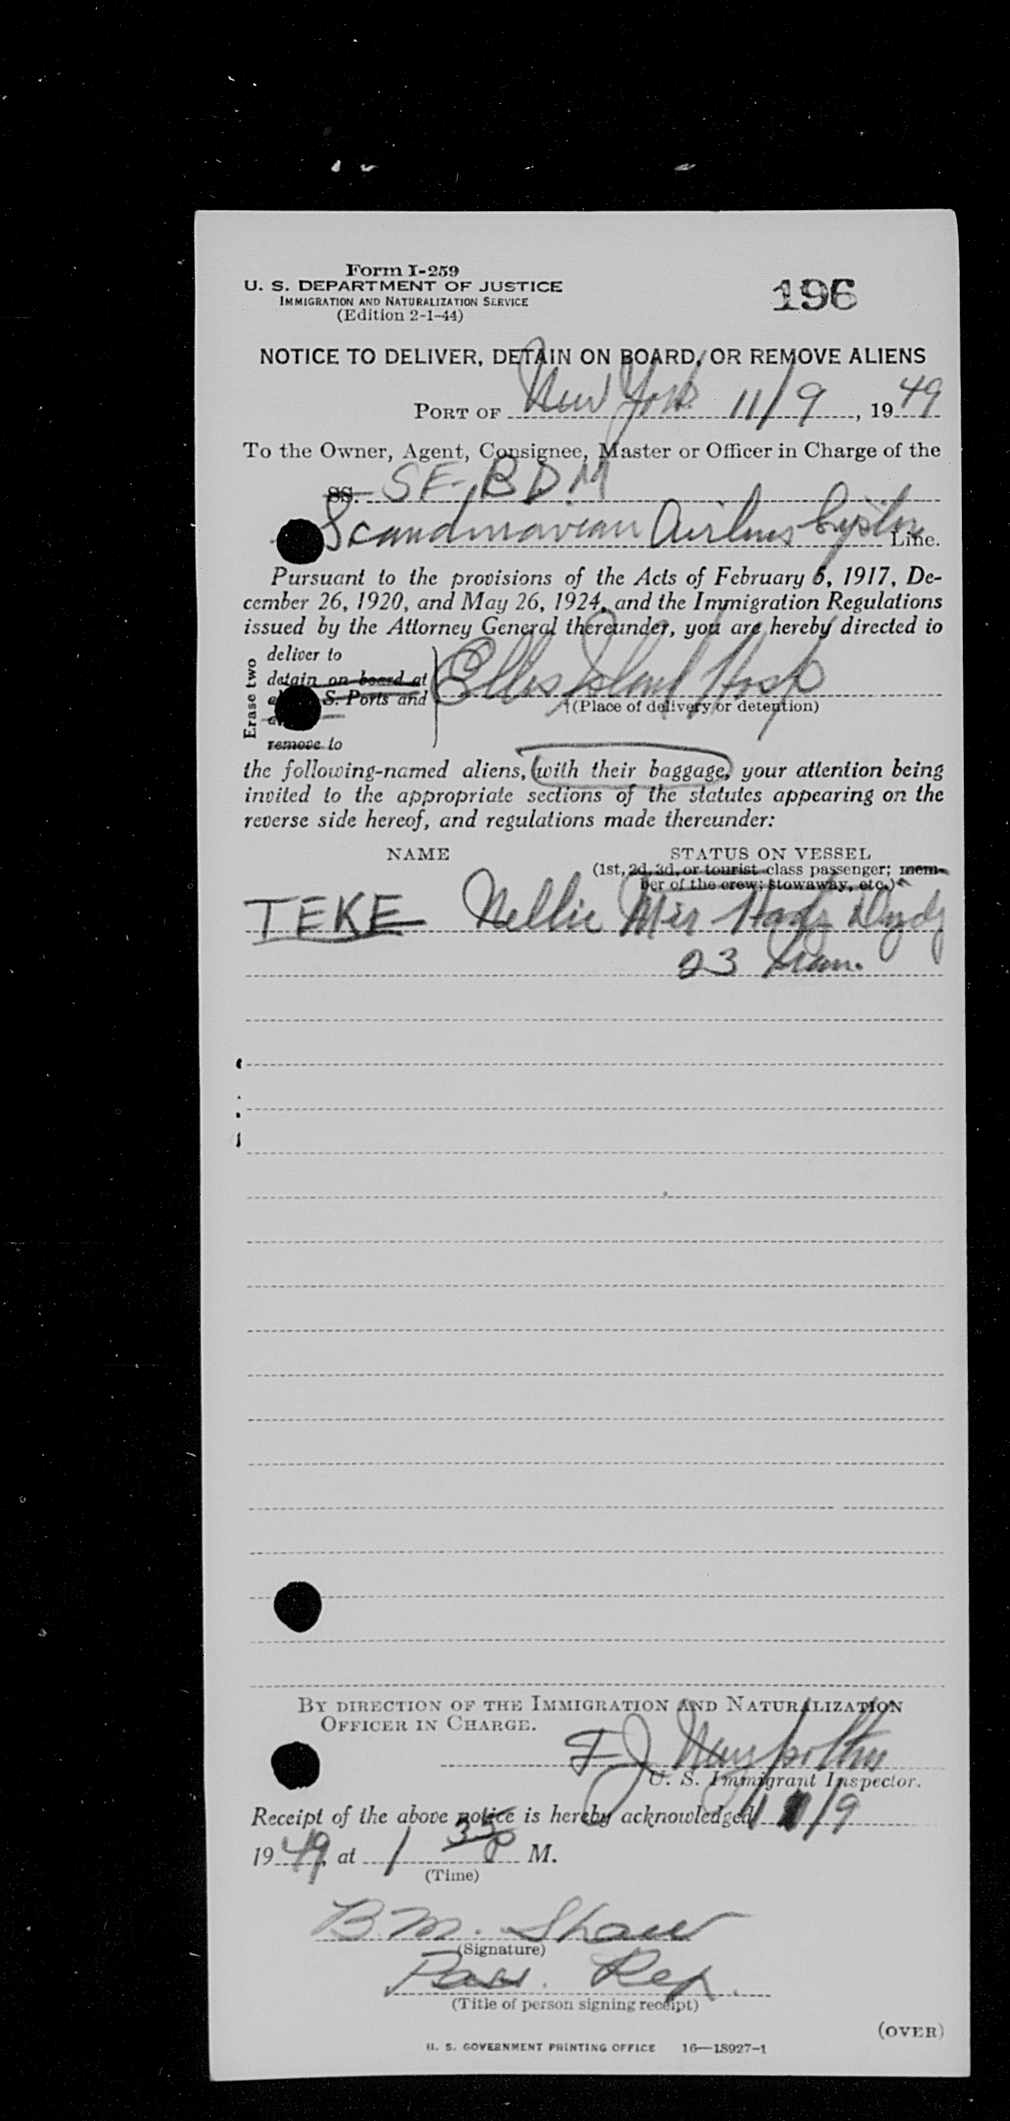 Form I-259
U. S. DEPARTMENT OF JUSTICE
IMMIGRATION AND NATURALIZATION SERVICE
(Edition 2-1-44)
196
NOTICE TO DELIVER, DETAIN ON BOARD, OR REMOVE ALIENS
PORT OF New York 11/9, 1949
To the Owner, Agent, Consignee, Master or Officer in Charge of the
SS. SE-BDM
Scandinavian Airlines System Line.
Pursuant to the provisions of the Acts of February 5, 1917, De-
cember 26, 1920, and May 26, 1924, and the Immigration Regulations
issued by the Attorney General thereunder, you are hereby directed to
Erase two
deliver to
detain on board at
S. Ports and
remove to
Ellis Island Hosp
(Place of delivery or detention)
the following-named aliens, with their baggage, your attention being
invited to the appropriate sections of the statutes appearing on the
reverse side hereof, and regulations made thereunder:
NAME STATUS ON VESSEL
(1st, 2d, 3d, or tourist class passenger; mem-
ber of the crew; stowaway, etc.)
TEKE Nellie
23
BY DIRECTION OF THE IMMIGRATION AND NATURALIZATION
OFFICER IN CHARGE.
F J
U. S. Immigrant Inspector.
Receipt of the above notice is hereby acknowledged 11/9
1949, at 1 35 P M.
(Time)
B. M. Shaw
(Signature)
Pass. Rep.
(Title of person signing receipt)
(OVER)
U. S. GOVERNMENT PRINTING OFFICE 16—18927-1